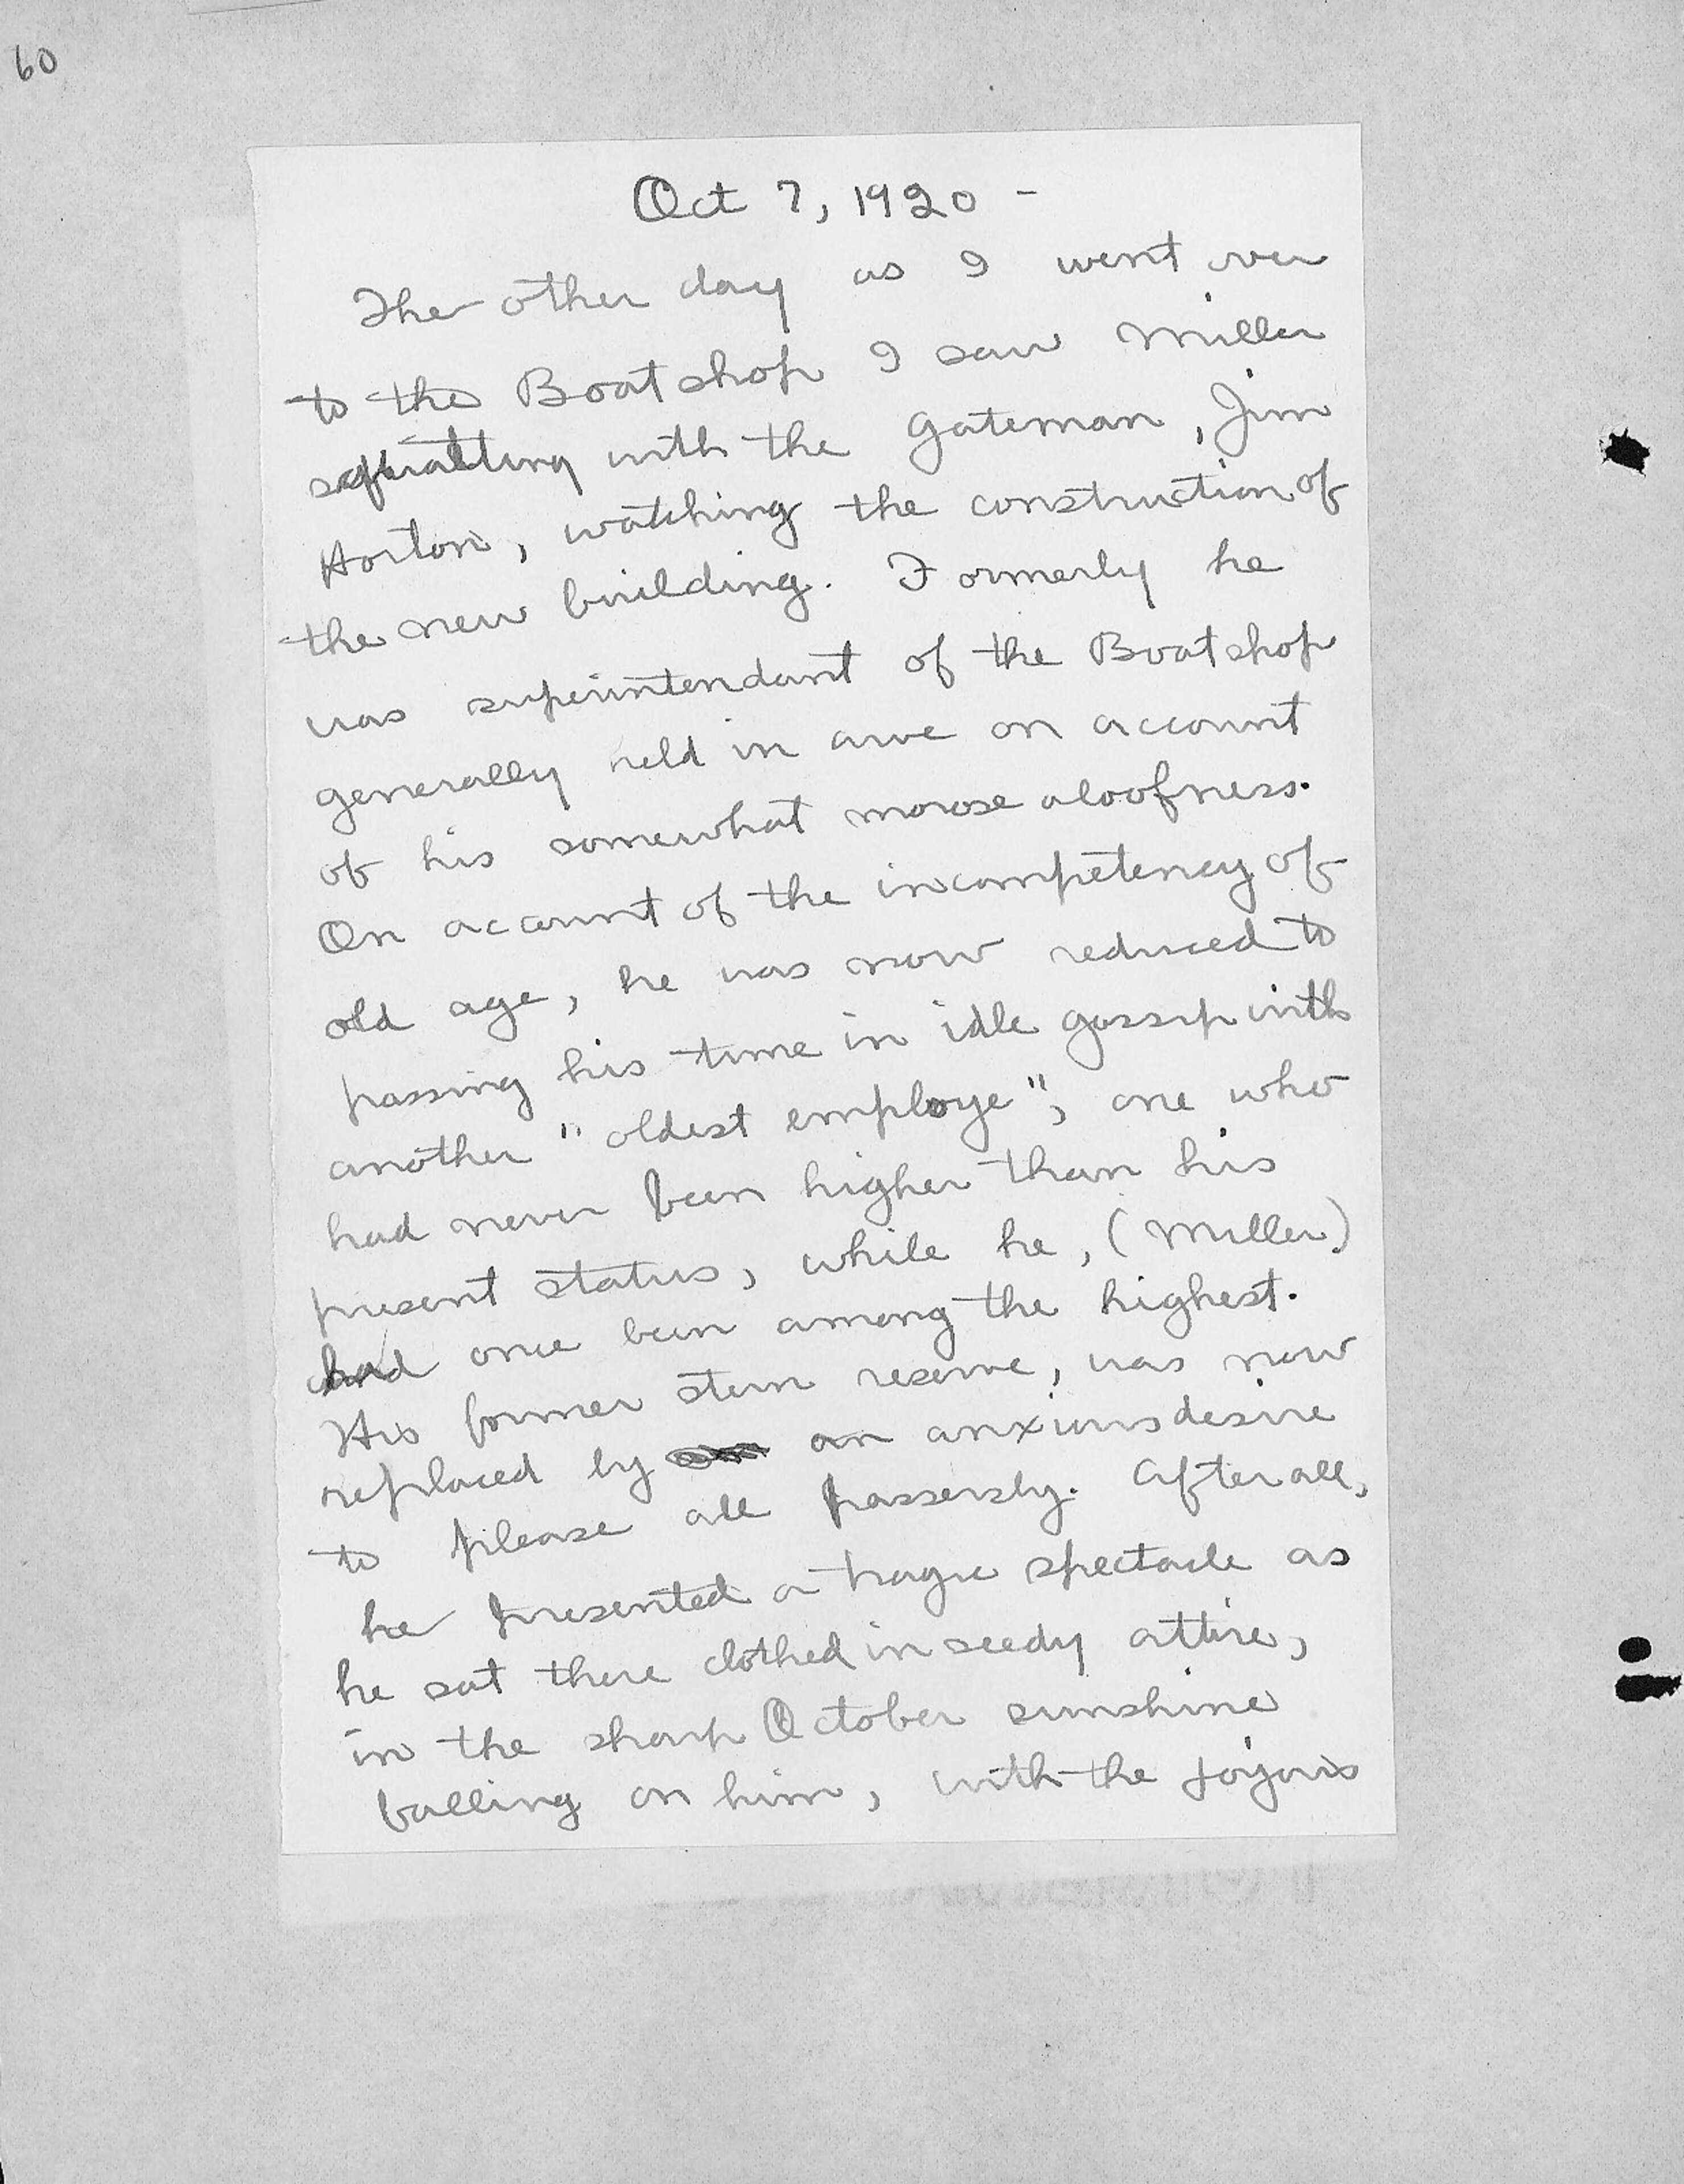 60
Oct 7, 1920 -
The other day as I went over
to the Boatshop I saw Miller
squatting with the gateman, Jim
Horton, watching the construction of
the new building. Formerly he
was superintendant of the Boatshop
generally held in awe on account
of his somewhat morose aloofness.
On account of the incompetency of
old age, he was now reduced to
passing his time in idle gossip with
another "oldest employe", one who
had never been higher than his
present status, while he, (Miller)
had once been among the highest.
His former stern reserve, was now
replaced by an anxious desire
to please all passersby. After all,
he presented a tragic spectacle as
he sat there clothed in seedy attire,
in the sharp October sunshine
falling on him, with the joyous